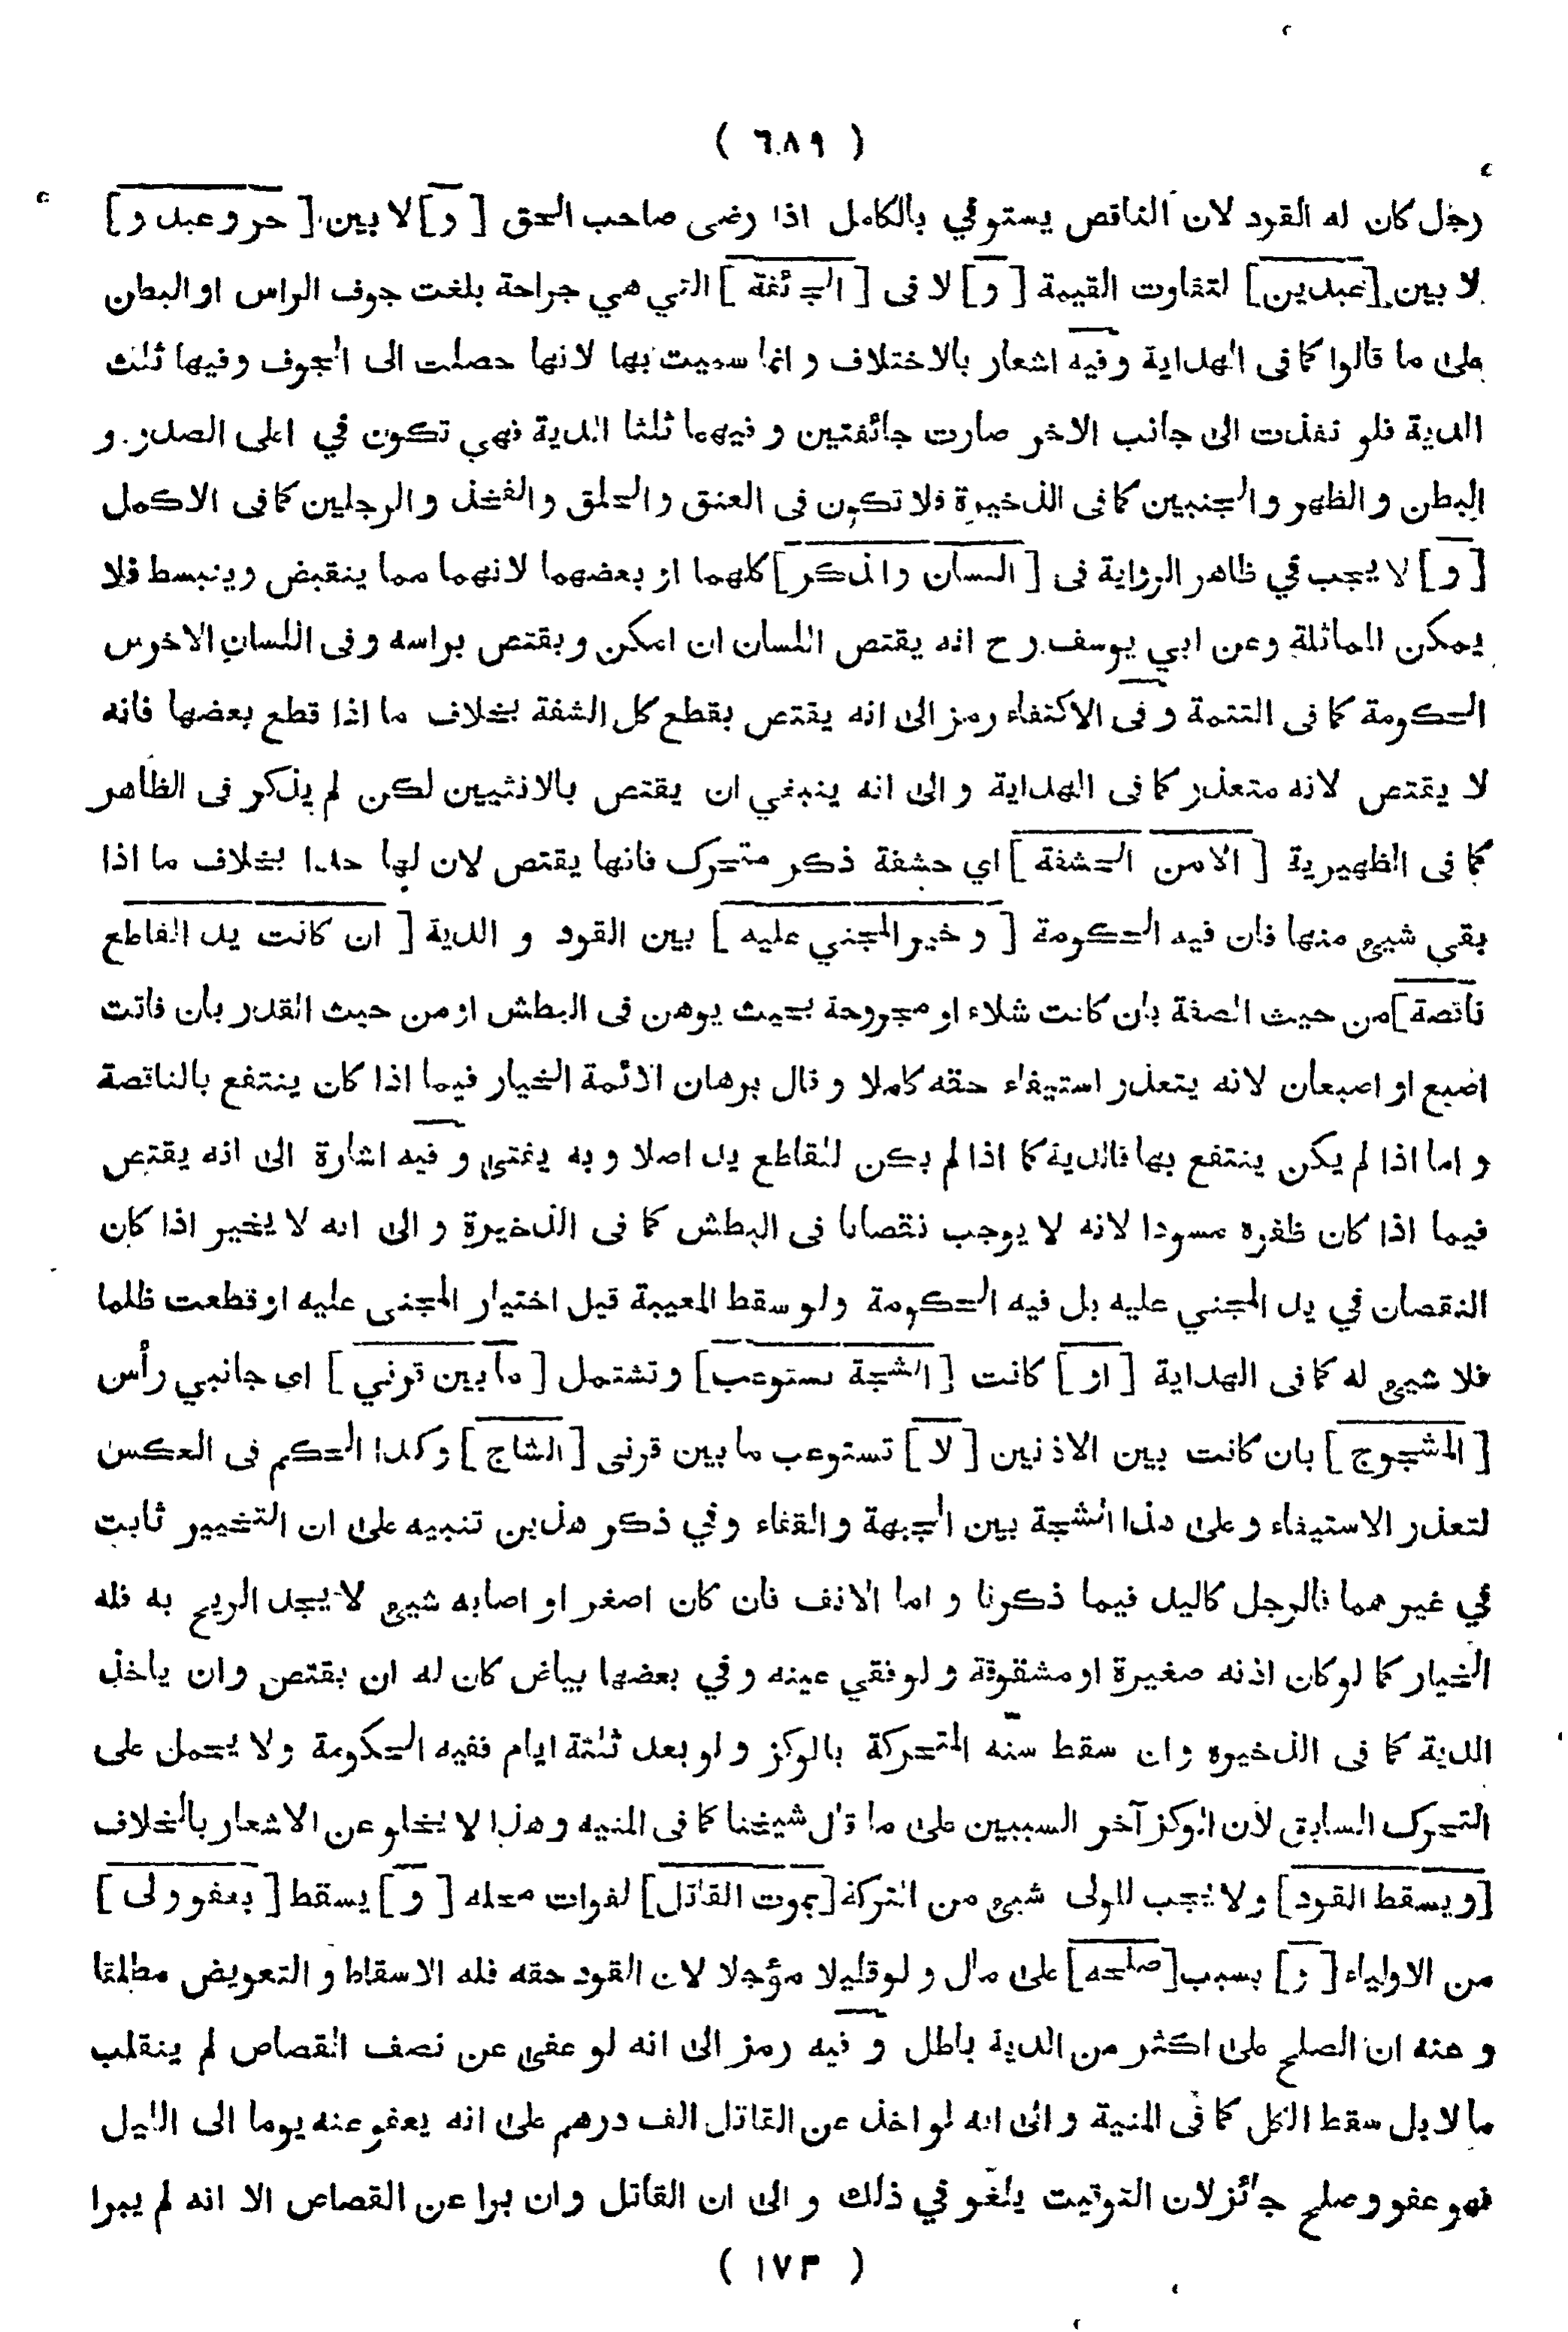 ( ٦٨٩ )
رجل كان له القود لان الناقص يستوفي بالكامل اذا رضى صاحب الحق [ و ] لا بين [ حر وعبد و ]
لا بين [ عبدين ] لتفاوت القيمة [ و ] لا فى [ الجائفة ] التي هي جراحة بلغت جوف الراس او البطن
على ما قالوا كما فى الهداية وفيه اشعار بالاختلاف و انما سميت بها لانها حصلت الى الجوف وفيها ثلث
الدية فلو نفذت الى جانب الاخر صارت جائفتين و فيهما ثلثا الدية فهي تكون في اعلى الصدر و
البطن و الظهر و الجنبين كما فى الذخيرة فلا تكون فى العنق و الحلق و الفخذ و الرجلين كما فى الاكمل
[ و ] لا يجب في ظاهر الرواية فى [ اللسان والذكر ] كلهما او بعضهما لانهما مما ينقبض وينبسط فلا
يمكن المماثلة وعن ابي يوسف رح انه يقتص اللسان ان امكن ويقتص براسه وفى اللسان الاخرس
الحكومة كما فى التتمة و فى الاكتفاء رمز الى انه يقتص بقطع كل الشفة بخلاف ما اذا قطع بعضها فانه
لا يقتص لانه متعذر كما فى الهداية و الى انه ينبغي ان يقتص بالانثيين لكن لم يذكر فى الظاهر
كما فى الظهيرية [ الا من الحشفة ] اي حشفة ذكر متحرك فانها يقتص لان لها حدا بخلاف ما اذا
بقي شيئ منها فان فيه الحكومة [ و خير المجني عليه ] بين القود و الدية [ ان كانت يد القاطع
ناقصة ] من حيث الصفة بان كانت شلاء او مجروحة بحيث يوهن فى البطش او من حيث القدر بان فاتت
اصبع او اصبعان لانه يتعذر استيفاء حقه كاملا و قال برهان الائمة الخيار فيما اذا كان ينتفع بالناقصة
و اما اذا لم يكن ينتفع بها فالدية كما اذا لم يكن للقاطع يد اصلا و به يفتى و فيه اشارة الى انه يقتص
فيما اذا كان ظفره مسودا لانه لا يوجب نقصانا فى البطش كما فى الذخيرة و الى انه لا يخير اذا كان
النقصان في يد المجني عليه بل فيه الحكومة ولو سقط المعيبة قبل اختيار المجنى عليه او قطعت ظلما
فلا شيئ له كما فى الهداية [ او ] كانت [ الشجة تستوعب ] و تشتمل [ ما بين قرني ] اى جانبي رأس
[ المشجوج ] بان كانت بين الاذنين [ لا ] تستوعب ما بين قرنى [ الشاج ] وكذا الحكم فى العكس
لتعذر الاستيفاء و على هذا الشجة بين الجبهة والقفاء وفي ذكر هذين تنبيه على ان التخيير ثابت
في غير هما فالرجل كاليد فيما ذكرنا و اما الانف فان كان اصغر او اصابه شيئ لا يجد الريح به فله
الخيار كما لو كان اذنه صغيرة او مشقوقة و لو فقي عينه و في بعضها بياض كان له ان يقتص وان ياخذ
الدية كما فى الذخيره وان سقط سنه المتحركة بالوكز و لو بعد ثلثة ايام ففيه الحكومة ولا يحمل على
التحرك السابق لان الوكز آخر السببين على ما قال شيخنا كما فى المنيه وهذا لا يخلو عن الاشعار بالخلاف
[ و يسقط القود ] ولا يجب للولى شيئ من التركة [ بموت القاتل ] لفوات محله [ و ] يسقط [ بعفو ولى ]
من الاولياء [ و ] بسبب [ صلحه ] على مال و لو قليلا مؤجلا لان القود حقه فله الاسقاط و التعويض مطلقا
و عنه ان الصلح على اكثر من الدية باطل و فيه رمز الى انه لو عفى عن نصف القصاص لم ينقلب
ما لا بل سقط الكل كما فى المنية و الى انه لو اخذ عن القاتل الف درهم على انه يعفو عنه يوما الى الليل
فهو عفو و صلح جائز لان التوقيت يلغو في ذلك و الى ان القاتل وان برا عن القصاص الا انه لم يبرا
( ١٧٣ )